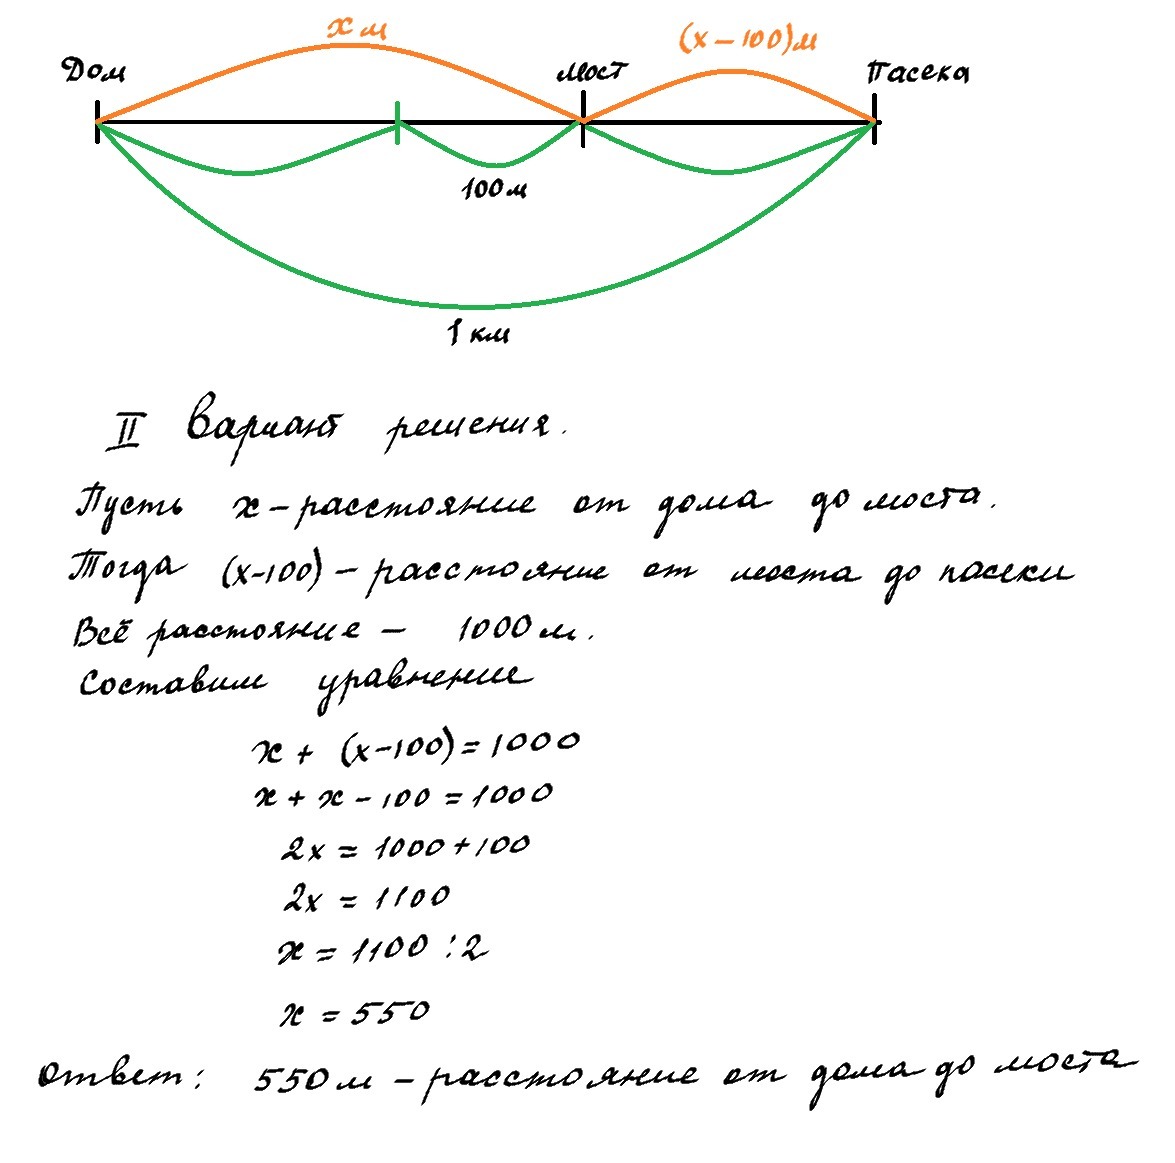 x м
(x-100)м
Дом
Мост
Пасека
100 м
1 км
II Вариант решения.
Пусть x - расстояние от дома до моста.
Тогда (x-100) - расстояние от моста до пасеки
Всё расстояние - 1000 м.
Составим уравнение
x + (x-100) = 1000
x + x - 100 = 1000
2x = 1000 + 100
2x = 1100
x = 1100 : 2
x = 550
Ответ: 550 м - расстояние от дома до моста